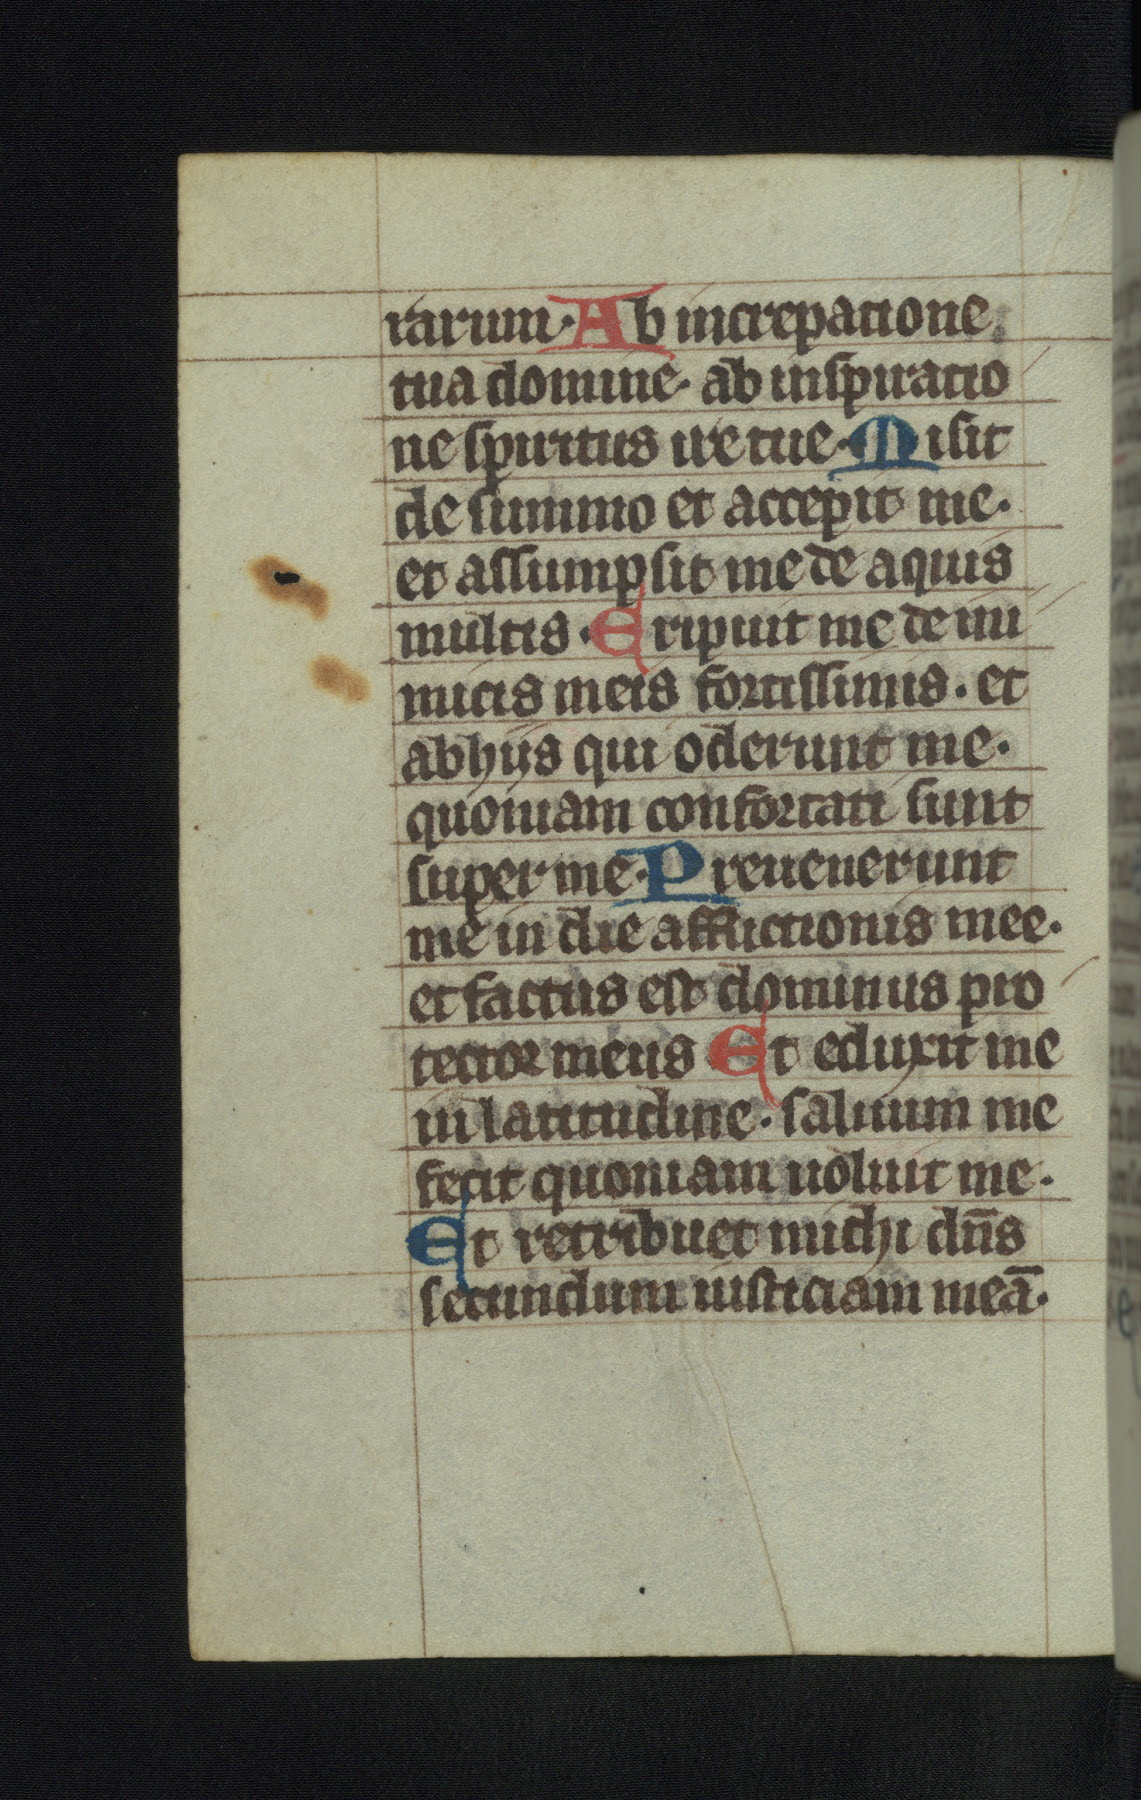 rarum· Ab increpatione
tua domine· ab inspiratio
ne spiritus ire tue· Misit
de summo et accepit me·
et assumpsit me de aquis
multis· Eripuit me de ini
micis meis fortissimis· et
ab hijs qui oderunt me·
quoniam confortati sunt
super me· Preuenerunt
me in die afflictionis mee·
et factus est dominus pro
tector meus Et eduxit me
in latitudine· saluum me
fecit quoniam uoluit me·
Et retribuet michi dn̄s
secundum iusticiam meā·